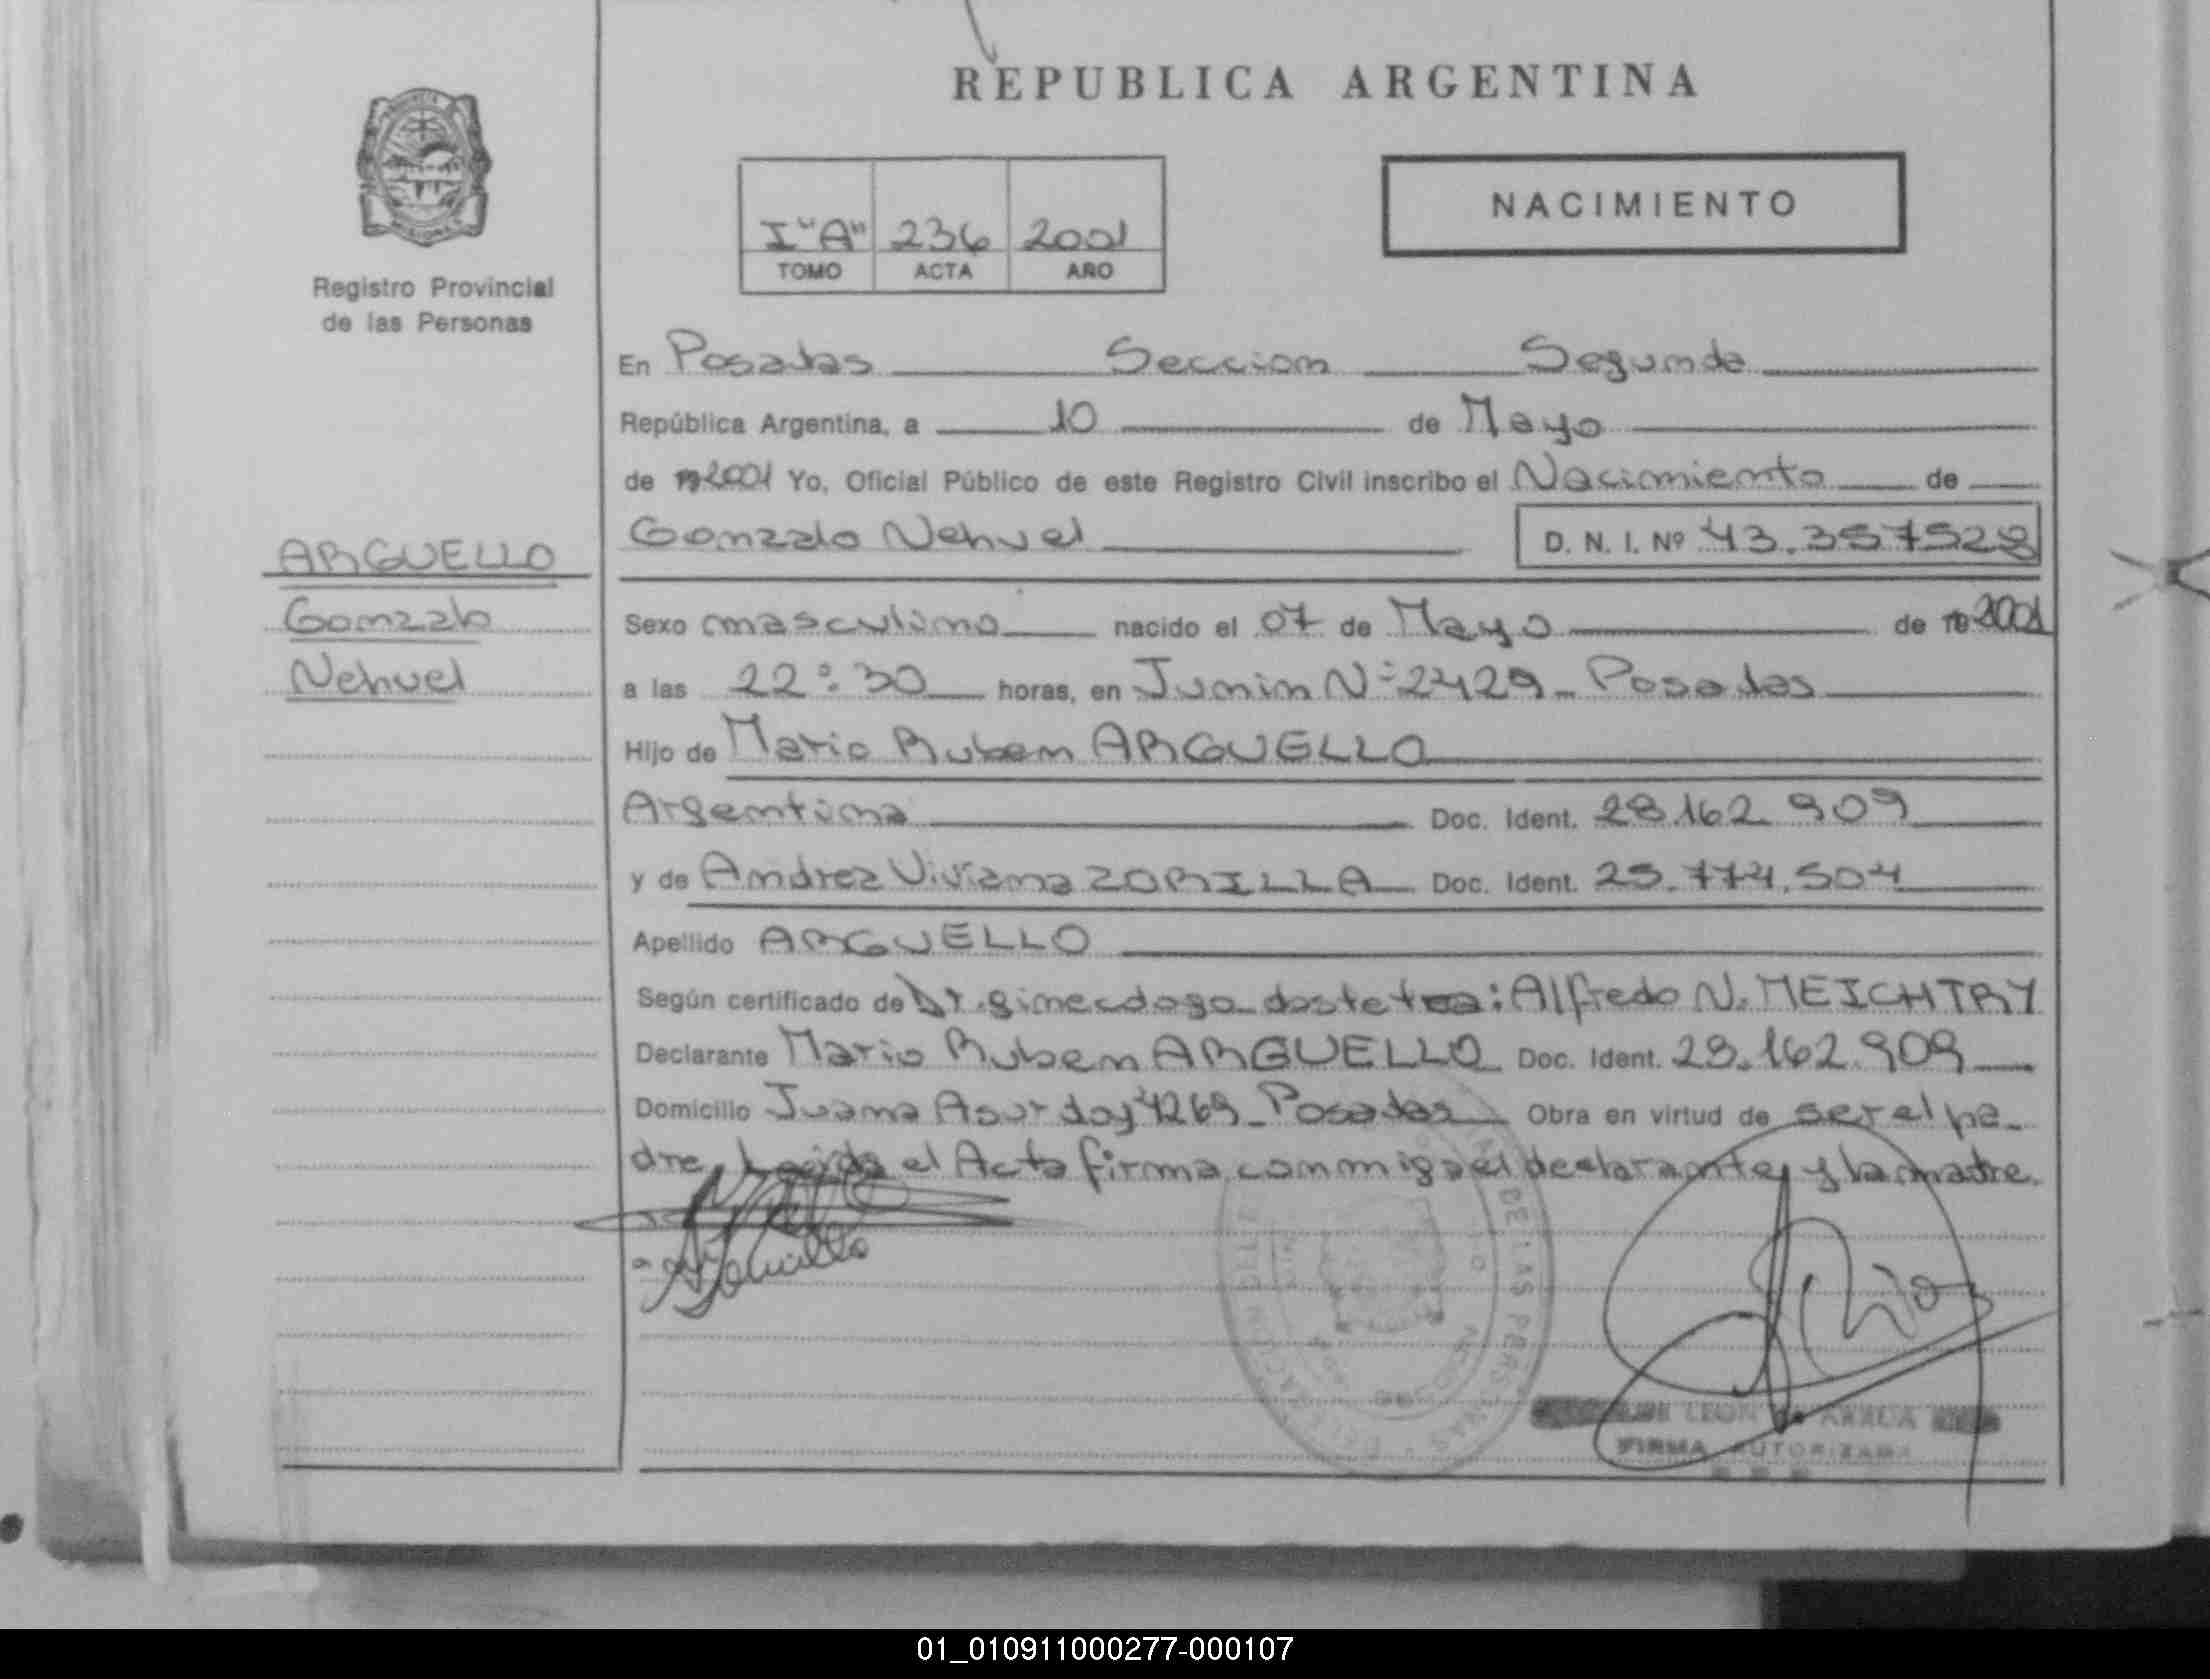 REPUBLICA ARGENTINA
NACIMIENTO
I "A" 236 2001
TOMO ACTA AÑO
Registro Provincial
de las Personas
En Posadas Seccion Segunda
República Argentina, a 10 de Mayo
de 19 2001 Yo, Oficial Público de este Registro Civil inscribo el Nacimiento de
Gonzalo Nehuel D. N. I. Nº 43.357528
ARGUELLO
Gonzalo
Nehuel
Sexo masculino nacido el 07 de Mayo de 19 2001
a las 22:30 horas, en Junin Nº 2429 - Posadas
Hijo de Mario Ruben ARGUELLO
Argentina Doc. Ident. 28.162.909
y de Andrea Viviana ZORILLA Doc. Ident. 25.774.504
Apellido ARGUELLO
Según certificado de Dr. : Alfredo N. MEICHTRY
Declarante Mario Ruben ARGUELLO Doc. Ident. 28.162.909
Domicilio Juana Asurduy 4269 - Posadas Obra en virtud de ser el pa-
dre, Leida el Acta firma conmigo el declarante y la madre.
DE LAS PERSONAS
FIRMA AUTORIZADA
01_010911000277-000107